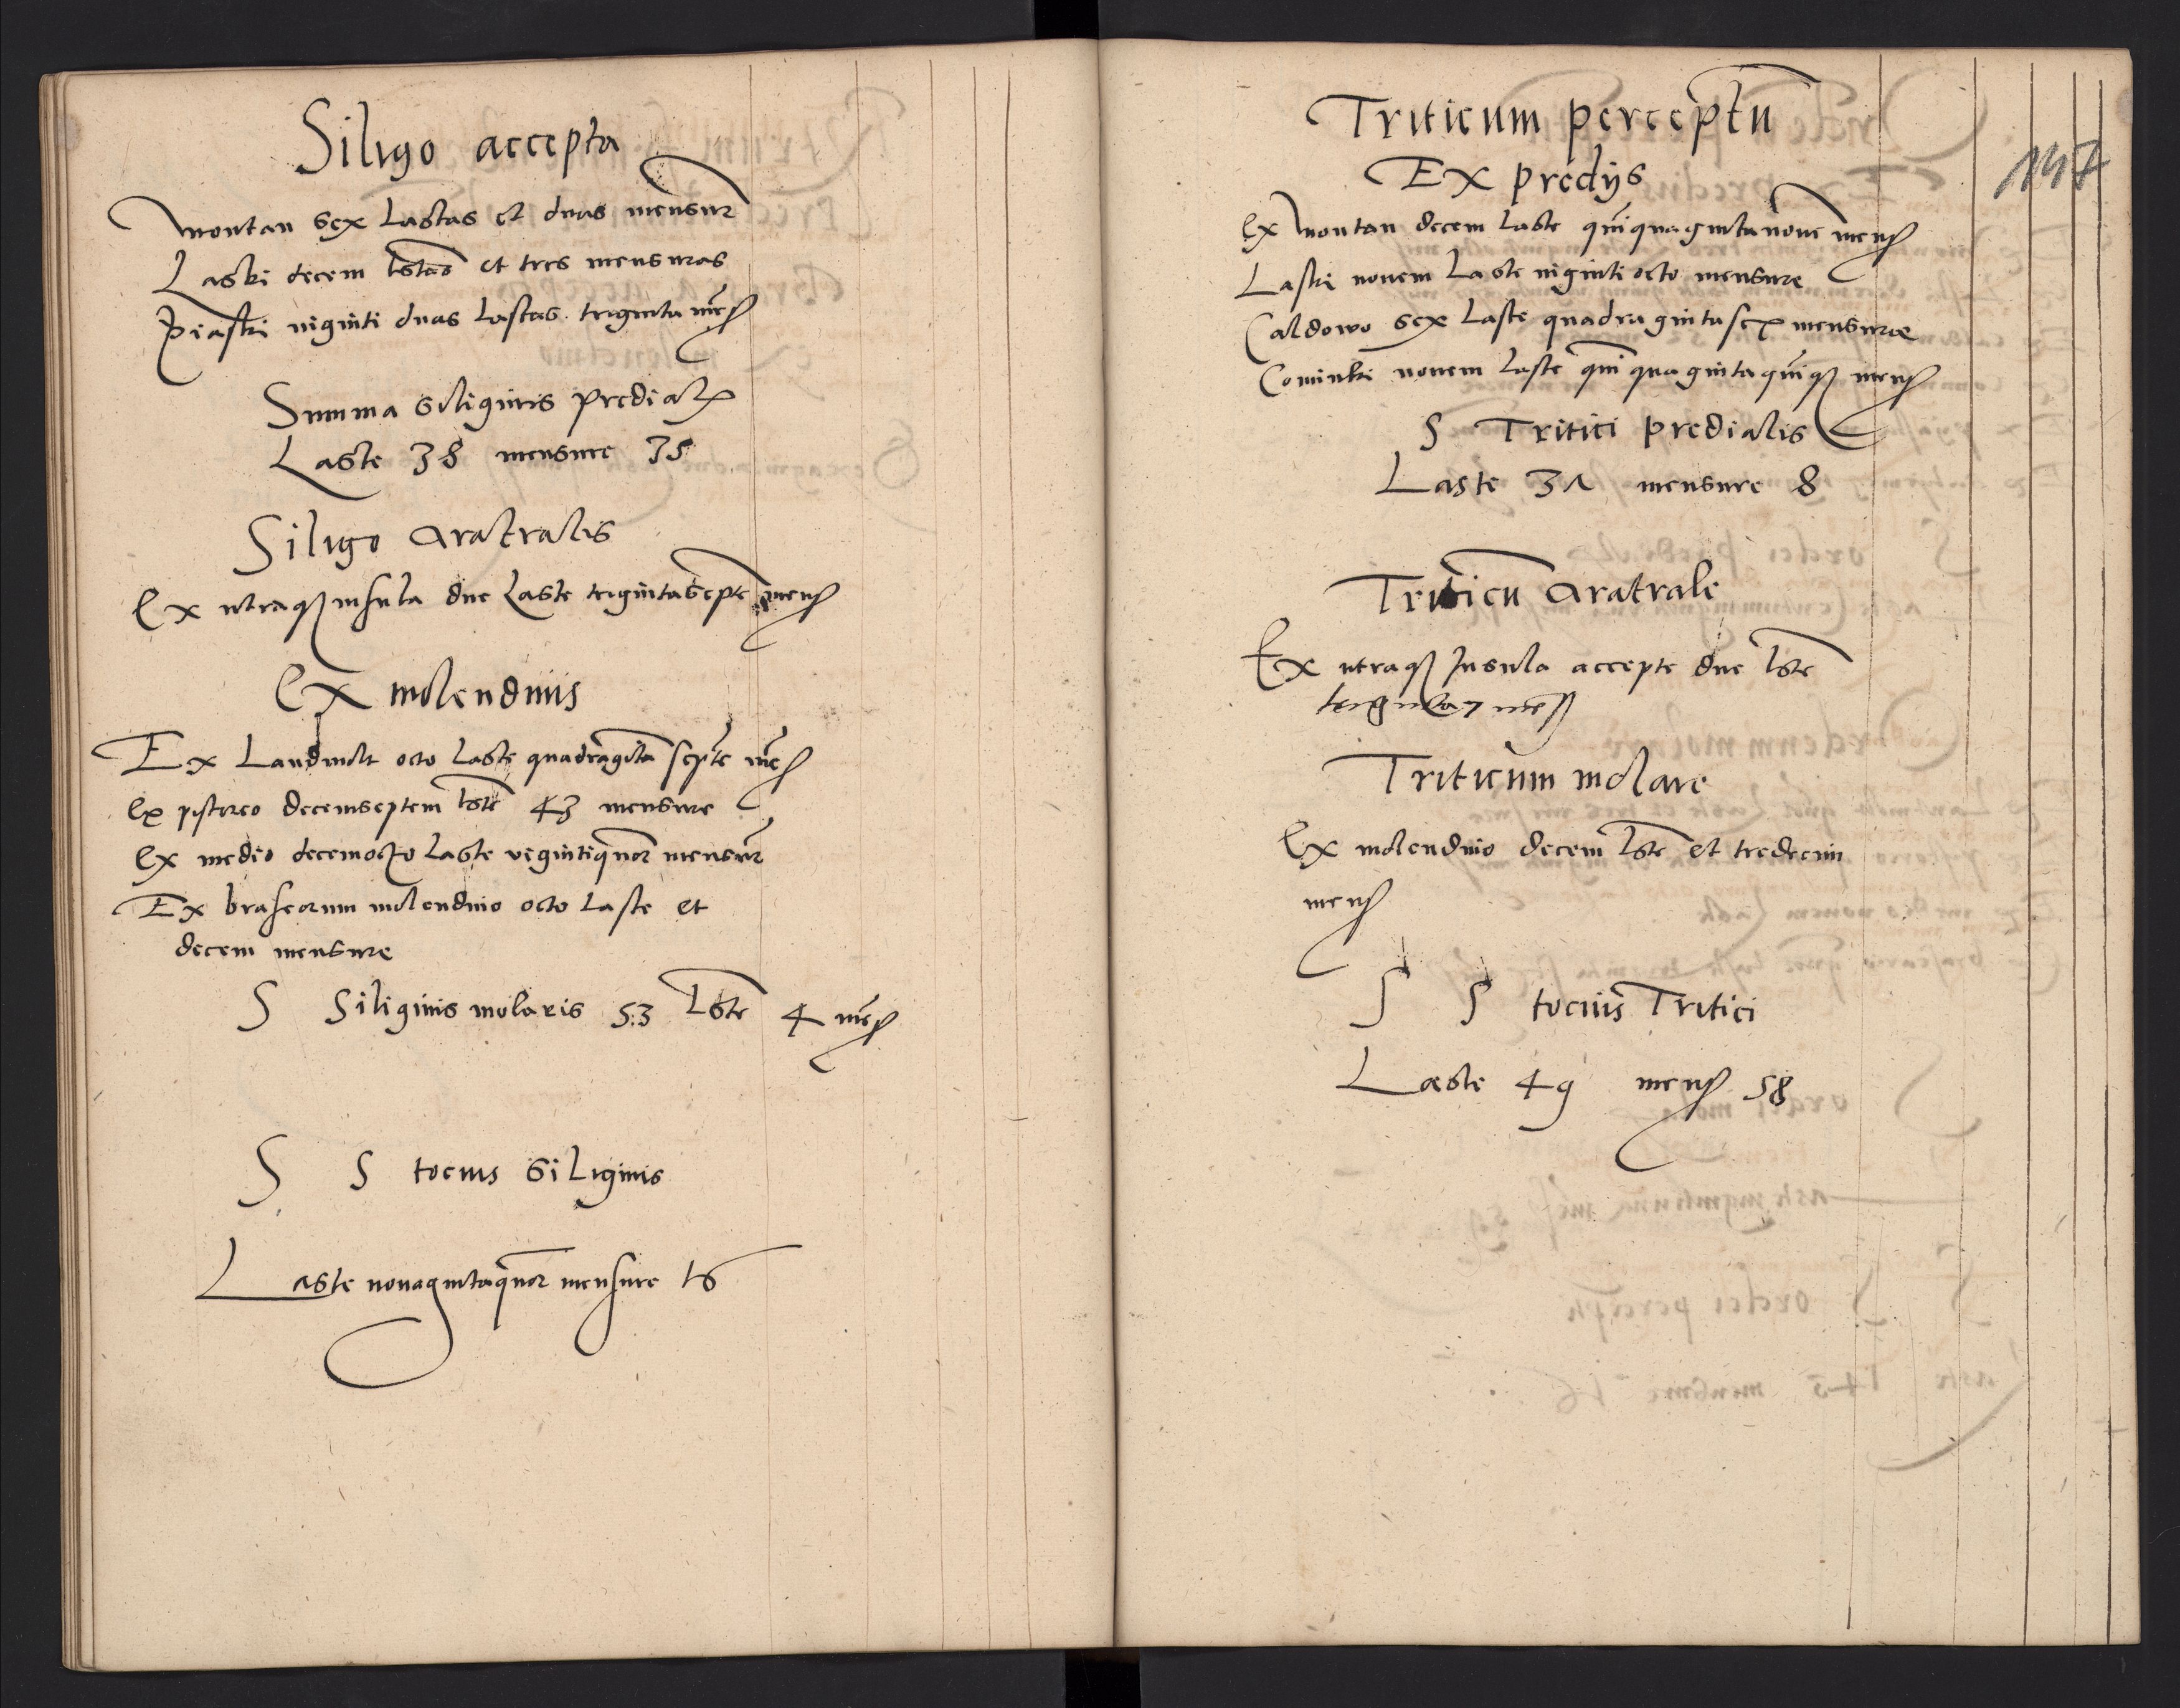 Siligo accepta
Montau sex Lastas et duas mensur
Laski decem lstas et tres mensuras
Piaski viginti duas Lastas triginta mes
Summa siliginis predial
Laste 38 mensure 35
Siligo Aratralis
Ex utraq insula due Laste trigintasepte mens
Ex molendinis
Ex Landmolt octo Laste quadraginta septe mes
Ex pistoreo decemseptem lste 43 mensure
Ex medio decemocto Laste vigintiquor mensur
Ex braseorum molendino octo Laste et
decem mensure
S Siliginis molaris 53 lste 4 mes
S S tocius Siliginis
Laste nonagintaquor mensure 16
Triticum perceptu
Ex predijs
Ex Montau decem Laste quiquagintanove mens
Laski novem Laste viginti octo mensure
Caldowo sex Laste quadragintasex mensurae
Cominki novem Laste quiquagintaquiq mens
S Tritici predialis
Laste 37 mensure 8
Triticu Aratrale
Ex utraq Insula accepte due lste
triginta 7 mes
Triticum molare
Ex molendino decem lste et tredecim
mens
S S tocius Tritici
Laste 49 mens 58